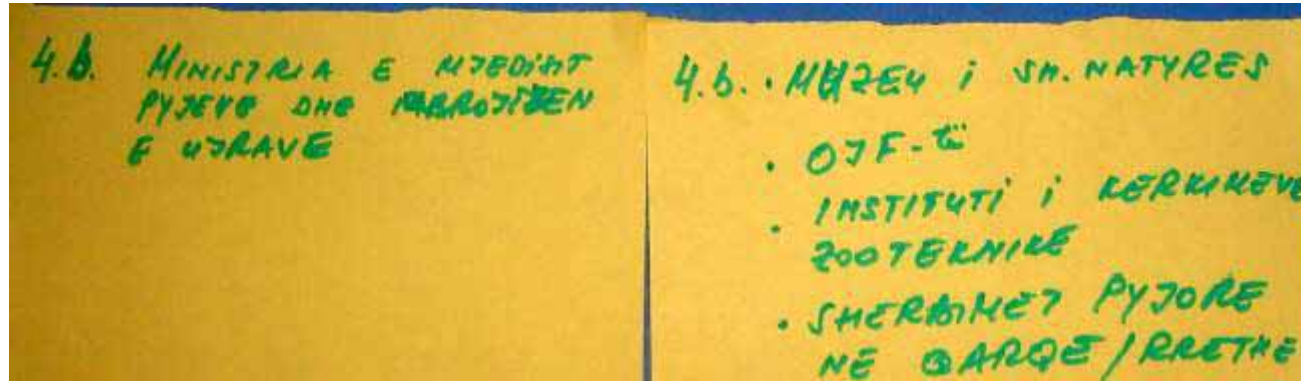 4.b. MINISTRIA E MJEDISIT
PYJEVE DHE
E UJRAVE
4.b. • MUZEU i SH. NATYRES
• OJF-të
• INSTITUTI i KERKIMEVE
ZOOTEKNIKE
• SHERBIMET PYJORE
NE QARQE/RRETHE